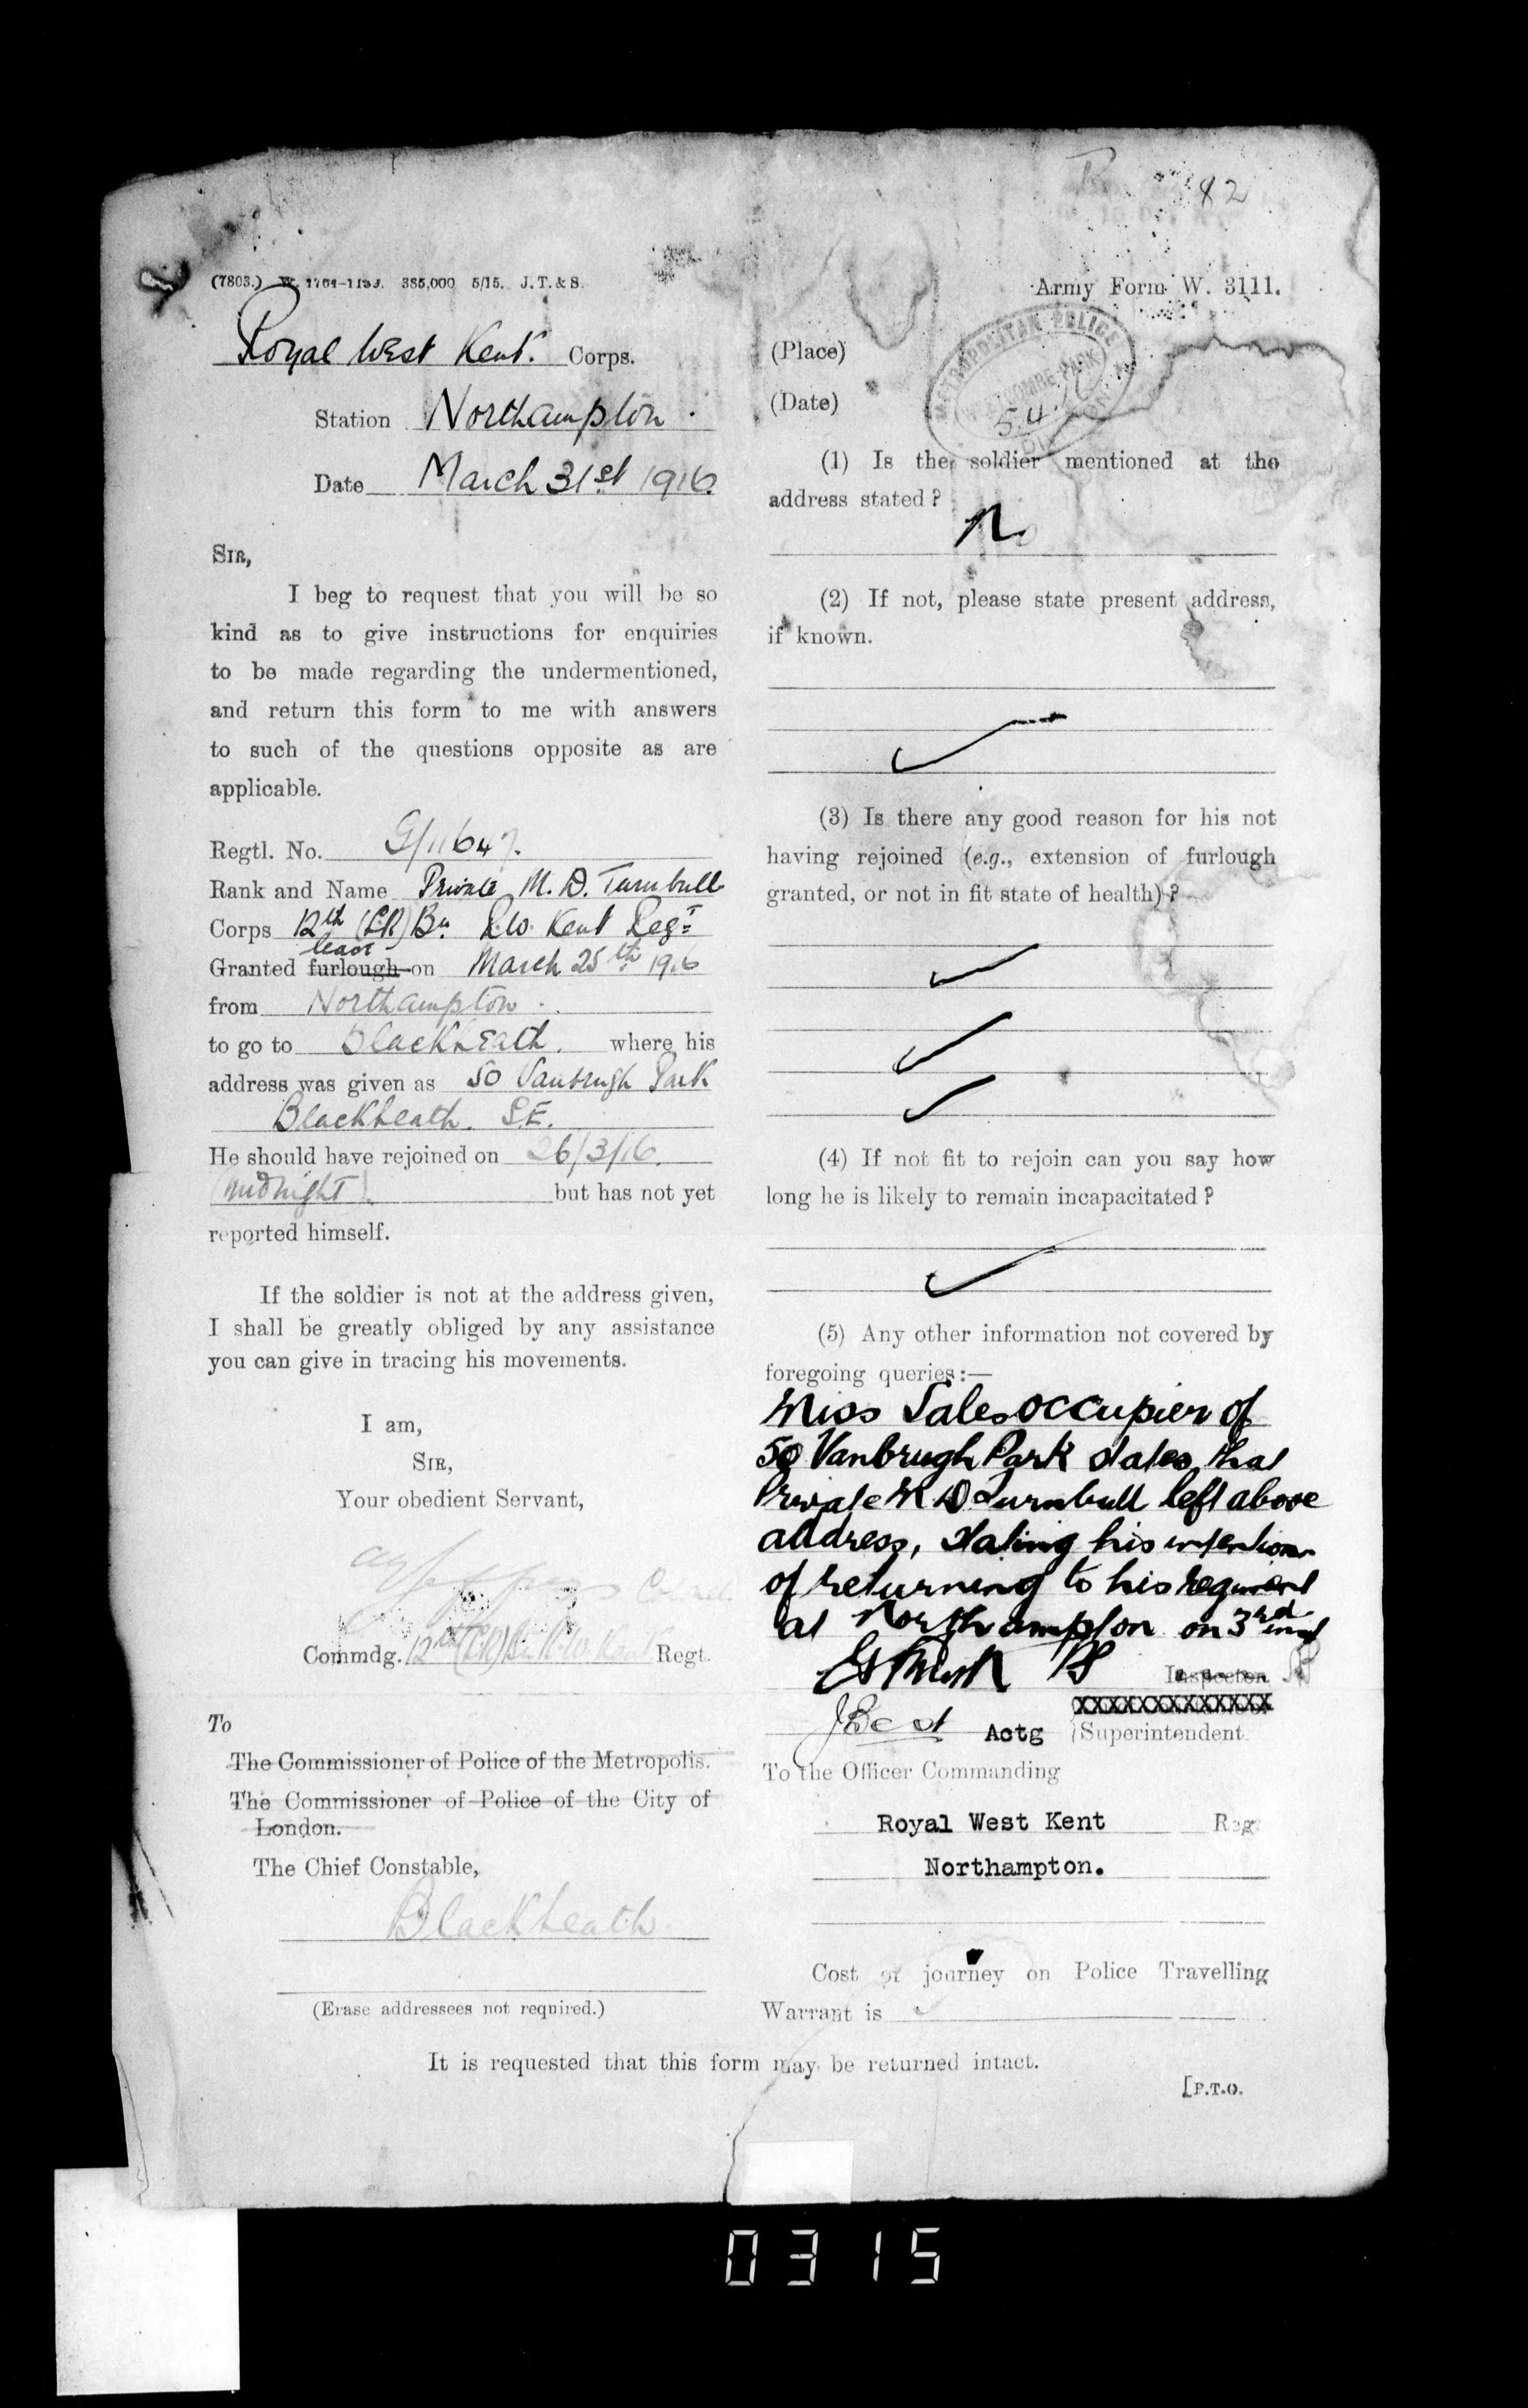 82
(7803.) W. 1704-1133. 385,000 5/15. J. T. & S.
Royal West Kent. Corps.
Station Northampton.
Date March 31st 1916.
SIR,
I beg to request that you will be so
kind as to give instructions for enquiries
to be made regarding the undermentioned,
and return this form to me with answers
to such of the questions opposite as are
applicable.
Regtl. No. G/11647.
Rank and Name Private M. D. Turnbull
Corps 12th (LR) Bn R.W. Kent Regt
leave
Granted furlough on March 25th 1916
from Northampton.
to go to Blackheath. where his
address was given as 50 Vanbrugh Park
Blackheath. S.E.
He should have rejoined on 26/3/16.
(midnight). but has not yet
reported himself.
If the soldier is not at the address given,
I shall be greatly obliged by any assistance
you can give in tracing his movements.
I am,
SIR,
Your obedient Servant,
Colonel
Commdg. 12th (LR) Bn R.W. Kent Regt.
To
The Commissioner of Police of the Metropolis.
The Commissioner of Police of the City of
London.
The Chief Constable,
Blackheath
(Erase addressees not required.)
Army Form W. 3111.
(Place)
(Date)
METROPOLITAN POLICE
WESTCOMBE PARK
5.4.16
(1) Is the soldier mentioned at the
address stated?
No
(2) If not, please state present address,
if known.
(3) Is there any good reason for his not
having rejoined (e.g., extension of furlough
granted, or not in fit state of health)?
(4) If not fit to rejoin can you say how
long he is likely to remain incapacitated?
(5) Any other information not covered by
foregoing queries:—
Miss Sales occupier of
50 Vanbrugh Park states that
Private M D Turnbull left above
address, stating his intention
of returning to his regiment
at Northampton on 3rd inst
PS Inspector
J Best Actg Superintendent.
To the Officer Commanding
Royal West Kent Reg.
Northampton.
Cost of journey on Police Travelling
Warrant is
It is requested that this form may be returned intact.
[P.T.O.
0315